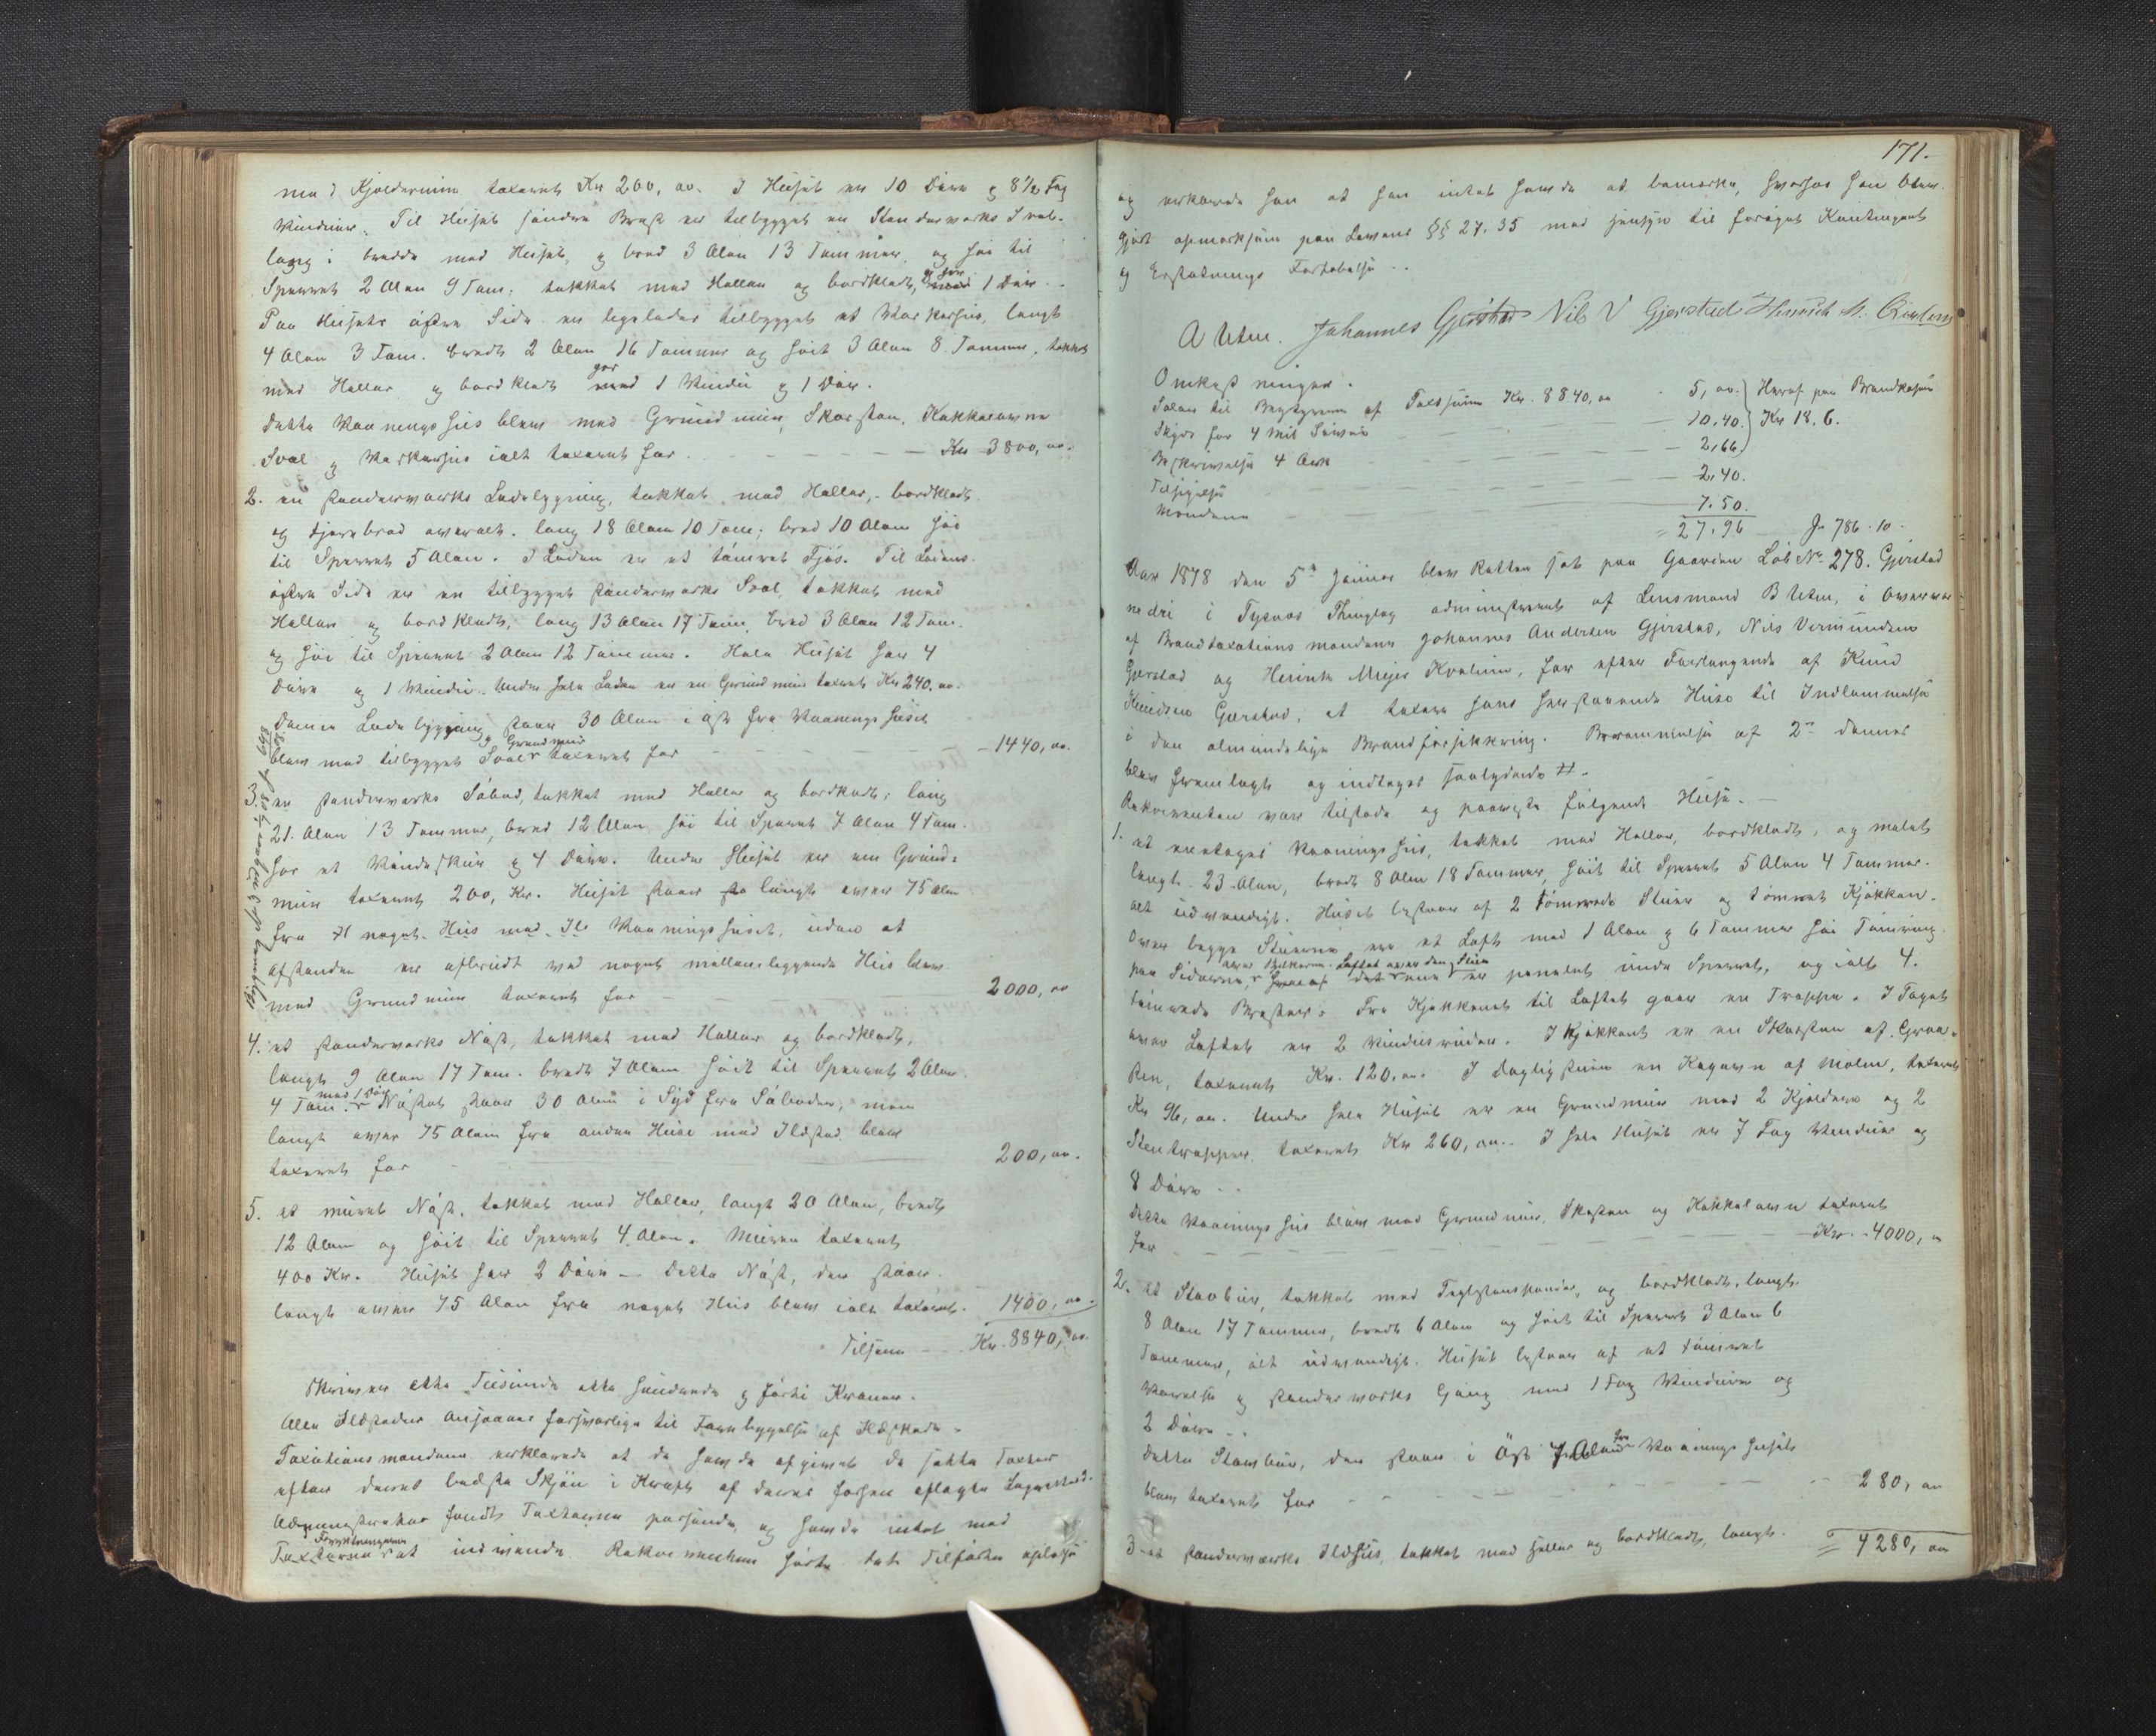 med Kjelderrum taxeret Kr 200,00. I Huset er 10 Døre og 8½ Fag
Vinduer. Til Husets søndre Bryst er tilbygget en Standerværks Sval.
lang i bredde med Huset, og bred 3 Alen 13 Tommer, og høi til
Sperret 2 Alen 9 Tom; tækket med Heller og bordklædt, og har 1 Dør.
Paa Husets østre Side er ligeledes tilbygget et Vaskerhus, langt
4 Alen 3 Tom. bredt 2 Alen 16 Tommer og høit 3 Alen 8 Tommer, tækket
med Heller og bordklædt har 1 Vindu og 1 Dør.
Dette Vaaningshus blev med Grundmur, Skorsten, Kakkelovne
Sval og Vaskerhus ialt taxeret for - - - Kr 3800,00.
2. en standerværks Ladebygning, tækket med Heller, bordklædt
og tjærebræd overalt. lang 18 Alen 10 Tom; bred 10 Alen høi
til Sperret 5 Alen. I Laden er et tømret Fjøs. Til Ladens
østre Side er en tilbygget standerværks Sval, tækket med
Heller og bordklædt, lang 13 Alen 17 Tom, bred 3 Alen 12 Tom.
og høi til Sperret 2 Alen 12 Tommer. Hele Huset har 4
Døre og 1 Vindu. Under hele Laden er en Grundmur taxeret Kr 240,00.
Denne Ladebygning staar 30 Alen i øst fra Vaaningshuset
og Grundmur
blev med tilbygget Sval taxeret for - - - 1440,00.
3. en standerværks Søbod, tækket med Heller og bordklædt; lang
21 Alen 13 Tommer, bred 12 Alen høi til Sperret 7 Alen 4 Tom.
har et Vindeskur og 4 Døre. Under Huset er en Grund=
mur taxeret 200, Kr. Huset staar langt over 75 Alen
fra noget Hus med Ild Vaaningshuset, uden at
Afstanden er afbrudt ved noget mellemliggende Hus blev
med Grundmur taxeret for - - - 2000,00
4. et standerværks Nøst, tækket med Heller og bordklædt,
langt 9 Alen 17 Tom. bredt 7 Alen høit til Sperret 2 Alen
med 1 Dør
4 Tom. Nøstet staar 30 Alen i Syd fra Søboden, men
langt over 75 Alen fra anden Huse med Ildsted blev
taxeret for - - - 200,00.
5. et muret Nøst, tækket med Heller, langt 20 Alen, bredt
12 Alen og høit til Sperret 4 Alen. Muren taxeret
400 Kr. Huset har 2 Døre - Dette Nøst, der staar
langt over 75 Alen fra noget Hus blev ialt taxeret 1400,00.
Tilsam - - Kr. 8840,00.
Skriver otte Tusinde otte hundrede ogførti Kroner.
Alle Ildsteder ansaaes forsvarlige til Forebyggelse af Ildskade.
Taxationsmændene erklærede at de havde afgivet de satte Taxter
efter deres bedste Skjøn i Kraft af deres forhen aflagte Lagrettesed.
Administrator fandt Taxterne passende, og havde intet mod
Forretningen
Taxterne at indvende Rekvirenten hørte det Tilførte oplæse
171.
og erklærede han at han intet havde at bemærke, hvorhos han blev
gjort opmærksom paa Lovens §§ 27. 35 med hensyn til forøget Kontingent
og Erstatnings Fortabelse.
A Uten. Johannes Gjerstad Nils V Gjerstad Henrich M.
Omkostninger.
Salær til Bestyreren af Taxtsum Kr. 8840,00 - 5,00. Heraf paa Brandkassen
Skyds for 4 Mil - - - 10,40. Kr 18.6.
Beskrivelse 4 Ark - - - 2,66
Tilsigelse - - - 2,40.
Mændene - - - 7.50.
= 27,96 Jr 786.10.
Aar 1878 den 5te Januar blev Retten sat paa Gaarden Løb No 278. Gjerstad
nedre i Tysnæs Thinglag administreret af Lensmand B Uten, i Overvær
af Brandtaxationsmændene Johannes Andersen Gjerstad, Nils Vermundsen
Gjerstad og Henrik Meyer Kvalvim, for efter Forlangende af Knud
Knudsen Gjerstad, at taxere hans herstaaende Huse til Indlemmelse
i den almindelige Brandforsikkring. Berammelse af 2den dennes
blev fremlagt og indtages saalydende #.
Rekvirenten var tilstede og paaviste følgende Huse.
1. et eenetages Vaaningshus, tækket med Heller, bordklædt, og malet
langt 23 Alen, bredt 8 Alen 18 Tommer, høit til Sperret 5 Alen 4 Tommer.
alt udvendigt. Huset bestaar af 2 tømrede Stuer og tømret Kjøkken.
Over begge Stuerne er et Loft med 1 Alen og 6 Tommer høi Tømring
Loftet over den Stue
paa Siderne, er panelet under Sperret, og ialt 4.
tømrede Bryster. Fra Kjøkkenet til Loftet gaar en Trappe. I Taget
over Loftet er 2 Vindusruder. I Kjøkkenet er en Skorsten af Graa=
sten, taxeret Kr. 120,00. I Dagligstuen en Kogovn af Malm, taxeret
Kr 96,00. Under hele Huset er en Grundmur med 2 Kjeldere og 2
Stentrapper, taxeret Kr 260,00. I hele Huset er 7 Fag Vinduer og
8 Døre.
Dette Vaaningshus blev med Grundmur, Skorsten og Kakkelovn taxeret
for - - - Kr. 4000,00
2. et Stavbur, tækket med og bordklædt, langt
8 Alen 17 Tommer, bredt 6 Alen og høit til Sperret 3 Alen 6
Tommer, alt udvendigt. Huset bestaar af et tømret
Værelse og standerværks Gang med 1 Fag Vinduer og
2 Døre.
Dette Stavbur, der staar i Øst 7 Alen fra Vaaningshuset
blev taxeret for - - - 280,00
3. et standerværks Ildhus, tækket med heller og bordklædt, langt = 4280,00